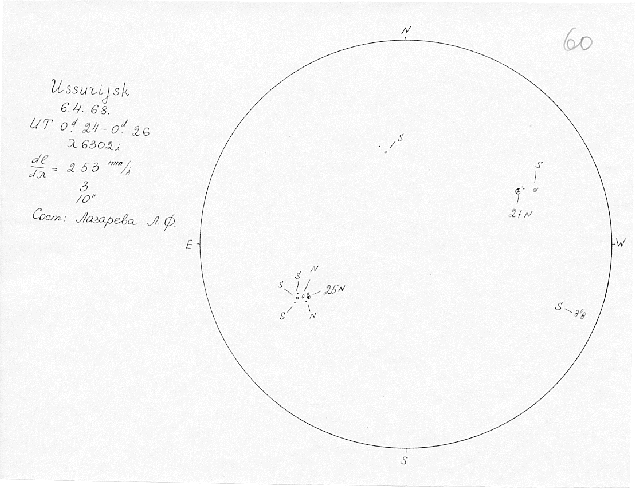 60
Ussurijsk
6.4.68.
UT 0.ᵈ 24-0.ᵈ 26
λ 6302
dl/dλ = 253 mm/
3
10"
Сост: Лазарева А.Ф.
N
S
S
21N
E
W
N
S
S
25N
S
N
S
S